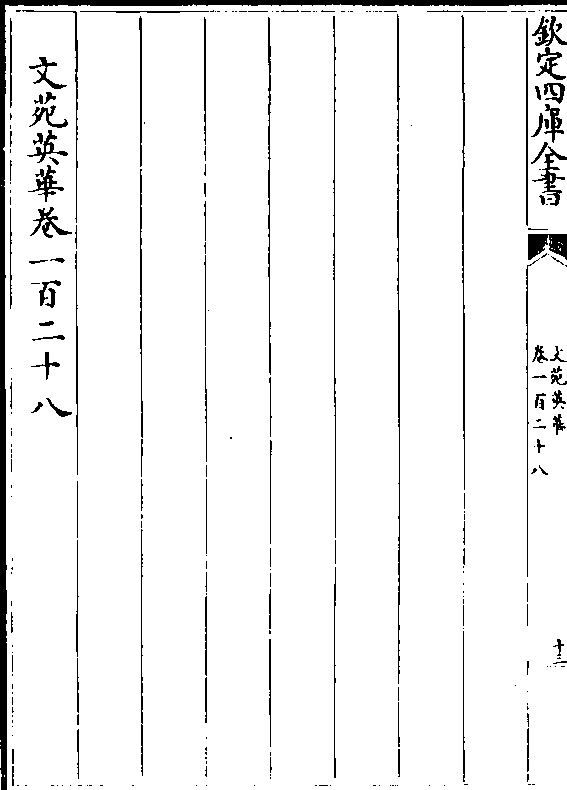 欽定四庫全書
文苑英華
卷一百二十八
十三
文苑英華卷一百二十八